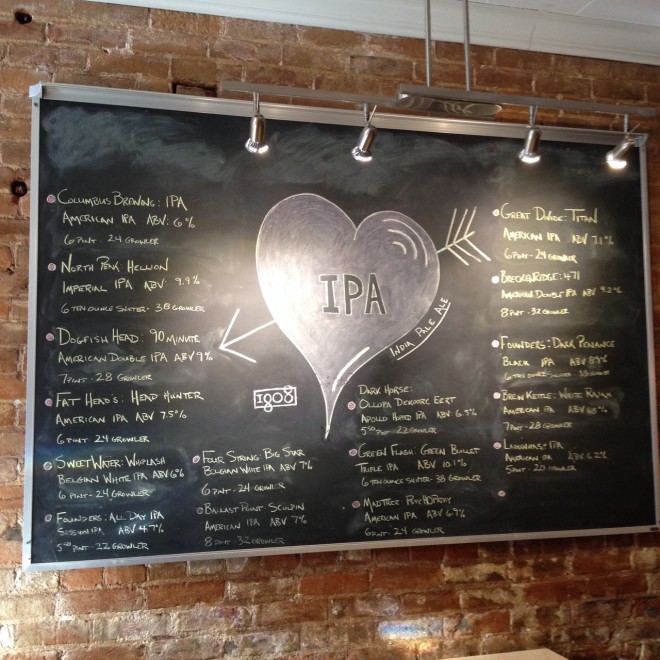 COLUMBUS BREWING: IPA
AMERICAN IPA ABV: 6%
6 PINT - 24 GROWLER
NORTH PEAK HELLION
IMPERIAL IPA ABV: 9.9%
6 TEN OUNCE SNIFTER - 38 GROWLER
DOGFISH HEAD: 90 MINUTE
AMERICAN DOUBLE IPA ABV 9%
7 PINT - 28 GROWLER
FAT HEAD'S: HEAD HUNTER
AMERICAN IPA ABV 7.5%
6 PINT 24 GROWLER
SWEETWATER: WHIPLASH
BELGIAN WHITE IPA ABV 6%
6 PINT - 24 GROWLER
FOUNDERS: ALL DAY IPA
SESSION IPA ABV 4.7%
5.50 PINT - 22 GROWLER
FOUR STRING: BIG STAR
BELGIAN WHITE IPA ABV 7%
6 PINT - 24 GROWLER
BALLAST POINT: SCULPIN
AMERICAN IPA ABV 7%
8 PINT - 32 GROWLER
IPA
INDIA PALE ALE
1908
DARK HORSE:
APOLLO HOPPED IPA ABV 6.5%
5.50 PINT - 22 GROWLER
GREEN FLASH: GREEN BULLET
TRIPLE IPA ABV 10.1%
6 TEN OUNCE SNIFTER - 38 GROWLER
MADTREE: PSYCHOPATHY
AMERICAN IPA ABV 6.9%
6 PINT - 24 GROWLER
GREAT DIVIDE: TITAN
AMERICAN IPA ABV 7.1%
6 PINT - 24 GROWLER
BRECKENRIDGE: 471
AMERICAN DOUBLE IPA ABV 9.2%
8 PINT - 32 GROWLER
FOUNDERS: DARK PENANCE
BLACK IPA ABV
6 TEN OUNCE SNIFTER
BREW KETTLE: WHITE RAJAH
AMERICAN IPA ABV
7 PINT - 28 GROWLER
LAGUNITAS: IPA
AMERICAN IPA ABV 6.2%
5 PINT - 20 GROWLER